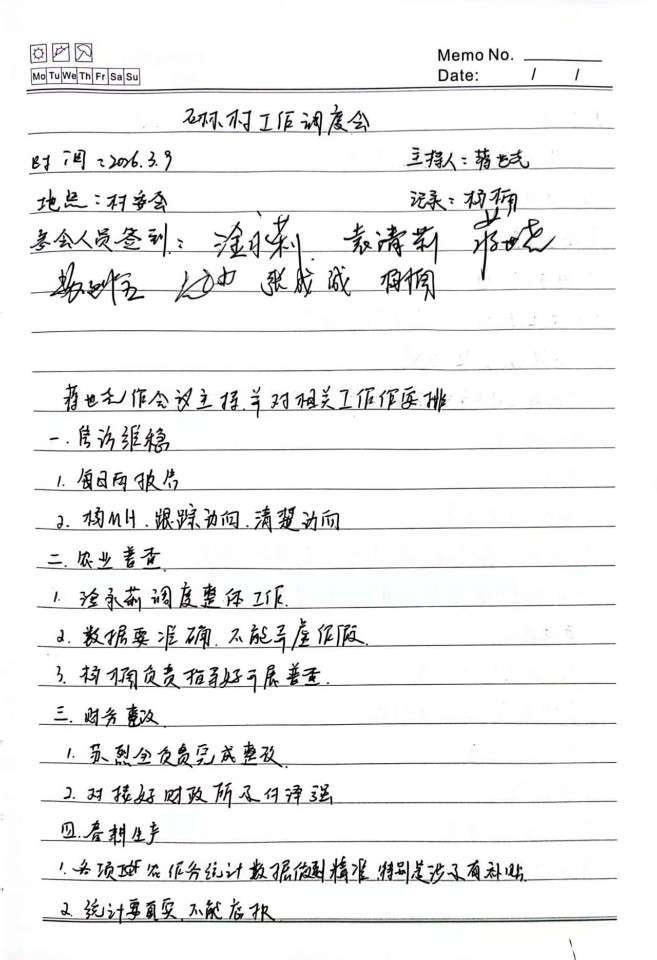 Memo No.
Mo Tu We Th Fr Sa Su
Date: / /
石林村工作调度会
时间：2026.3.9 主持人：蒋世先
地点：村委会 记录：杨桐
参会人员签到： 涂永莉 袁清莉 蒋世先
张成诚 杨桐
蒋世先作会议主持并对相关工作作安排
一. 信访维稳
1. 每日两报告
2. 杨MH. 跟踪动向. 清楚动向
二. 农业普查
1. 涂永莉调度整体工作.
2. 数据要准确. 不能弄虚作假.
3. 杨桐负责指导好开展普查.
三. 财务整改
1. 苏烈全负责完成整改
2. 对接好财政所及付泽强
四. 春耕生产
1. 各项农作务统计数据做到精准 特别是涉及有补贴.
2. 统计要真实. 不能虚报